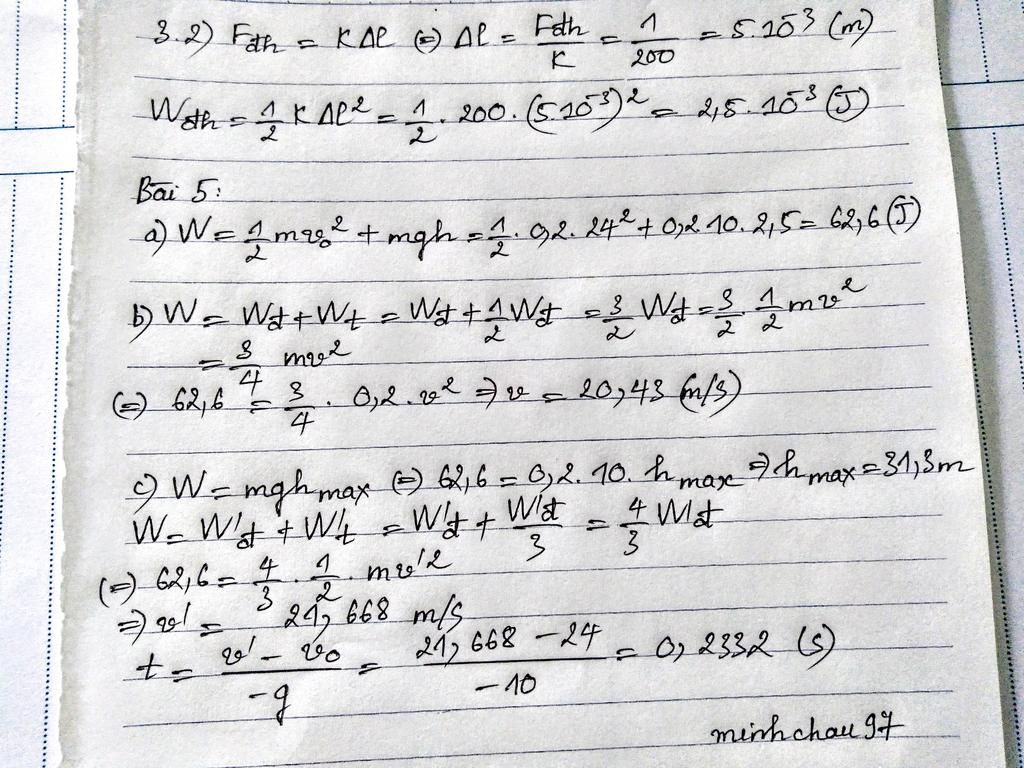 3.2) Fđh = KΔl (=) Δl = Fđh/K = 1/200 = 5.10⁻³ (m)
Wđh = 1/2 KΔl² = 1/2 . 200 . (5.10⁻³)² = 2,5.10⁻³ (J)
Bài 5:
a) W = 1/2 mv₀² + mgh = 1/2 . 0,2 . 24² + 0,2.10.2,5 = 62,6 (J)
b) W = Wđ + Wt = Wđ + 1/2 Wđ = 3/2 Wđ = 3/2 . 1/2 mv²
= 3/4 mv²
(=) 62,6 = 3/4 . 0,2.v² ⇒ v = 20,43 (m/s)
c) W = mgh max (=) 62,6 = 0,2.10.h max ⇒ h max = 31,3m
W = W'đ + W't = W'đ + W'đ/3 = 4/3 W'đ
(=) 62,6 = 4/3 . 1/2 . mv'²
⇒ v' = 21,668 m/s
t = v' - v₀/-g = 21,668 - 24/-10 = 0,2332 (s)
minhchau97